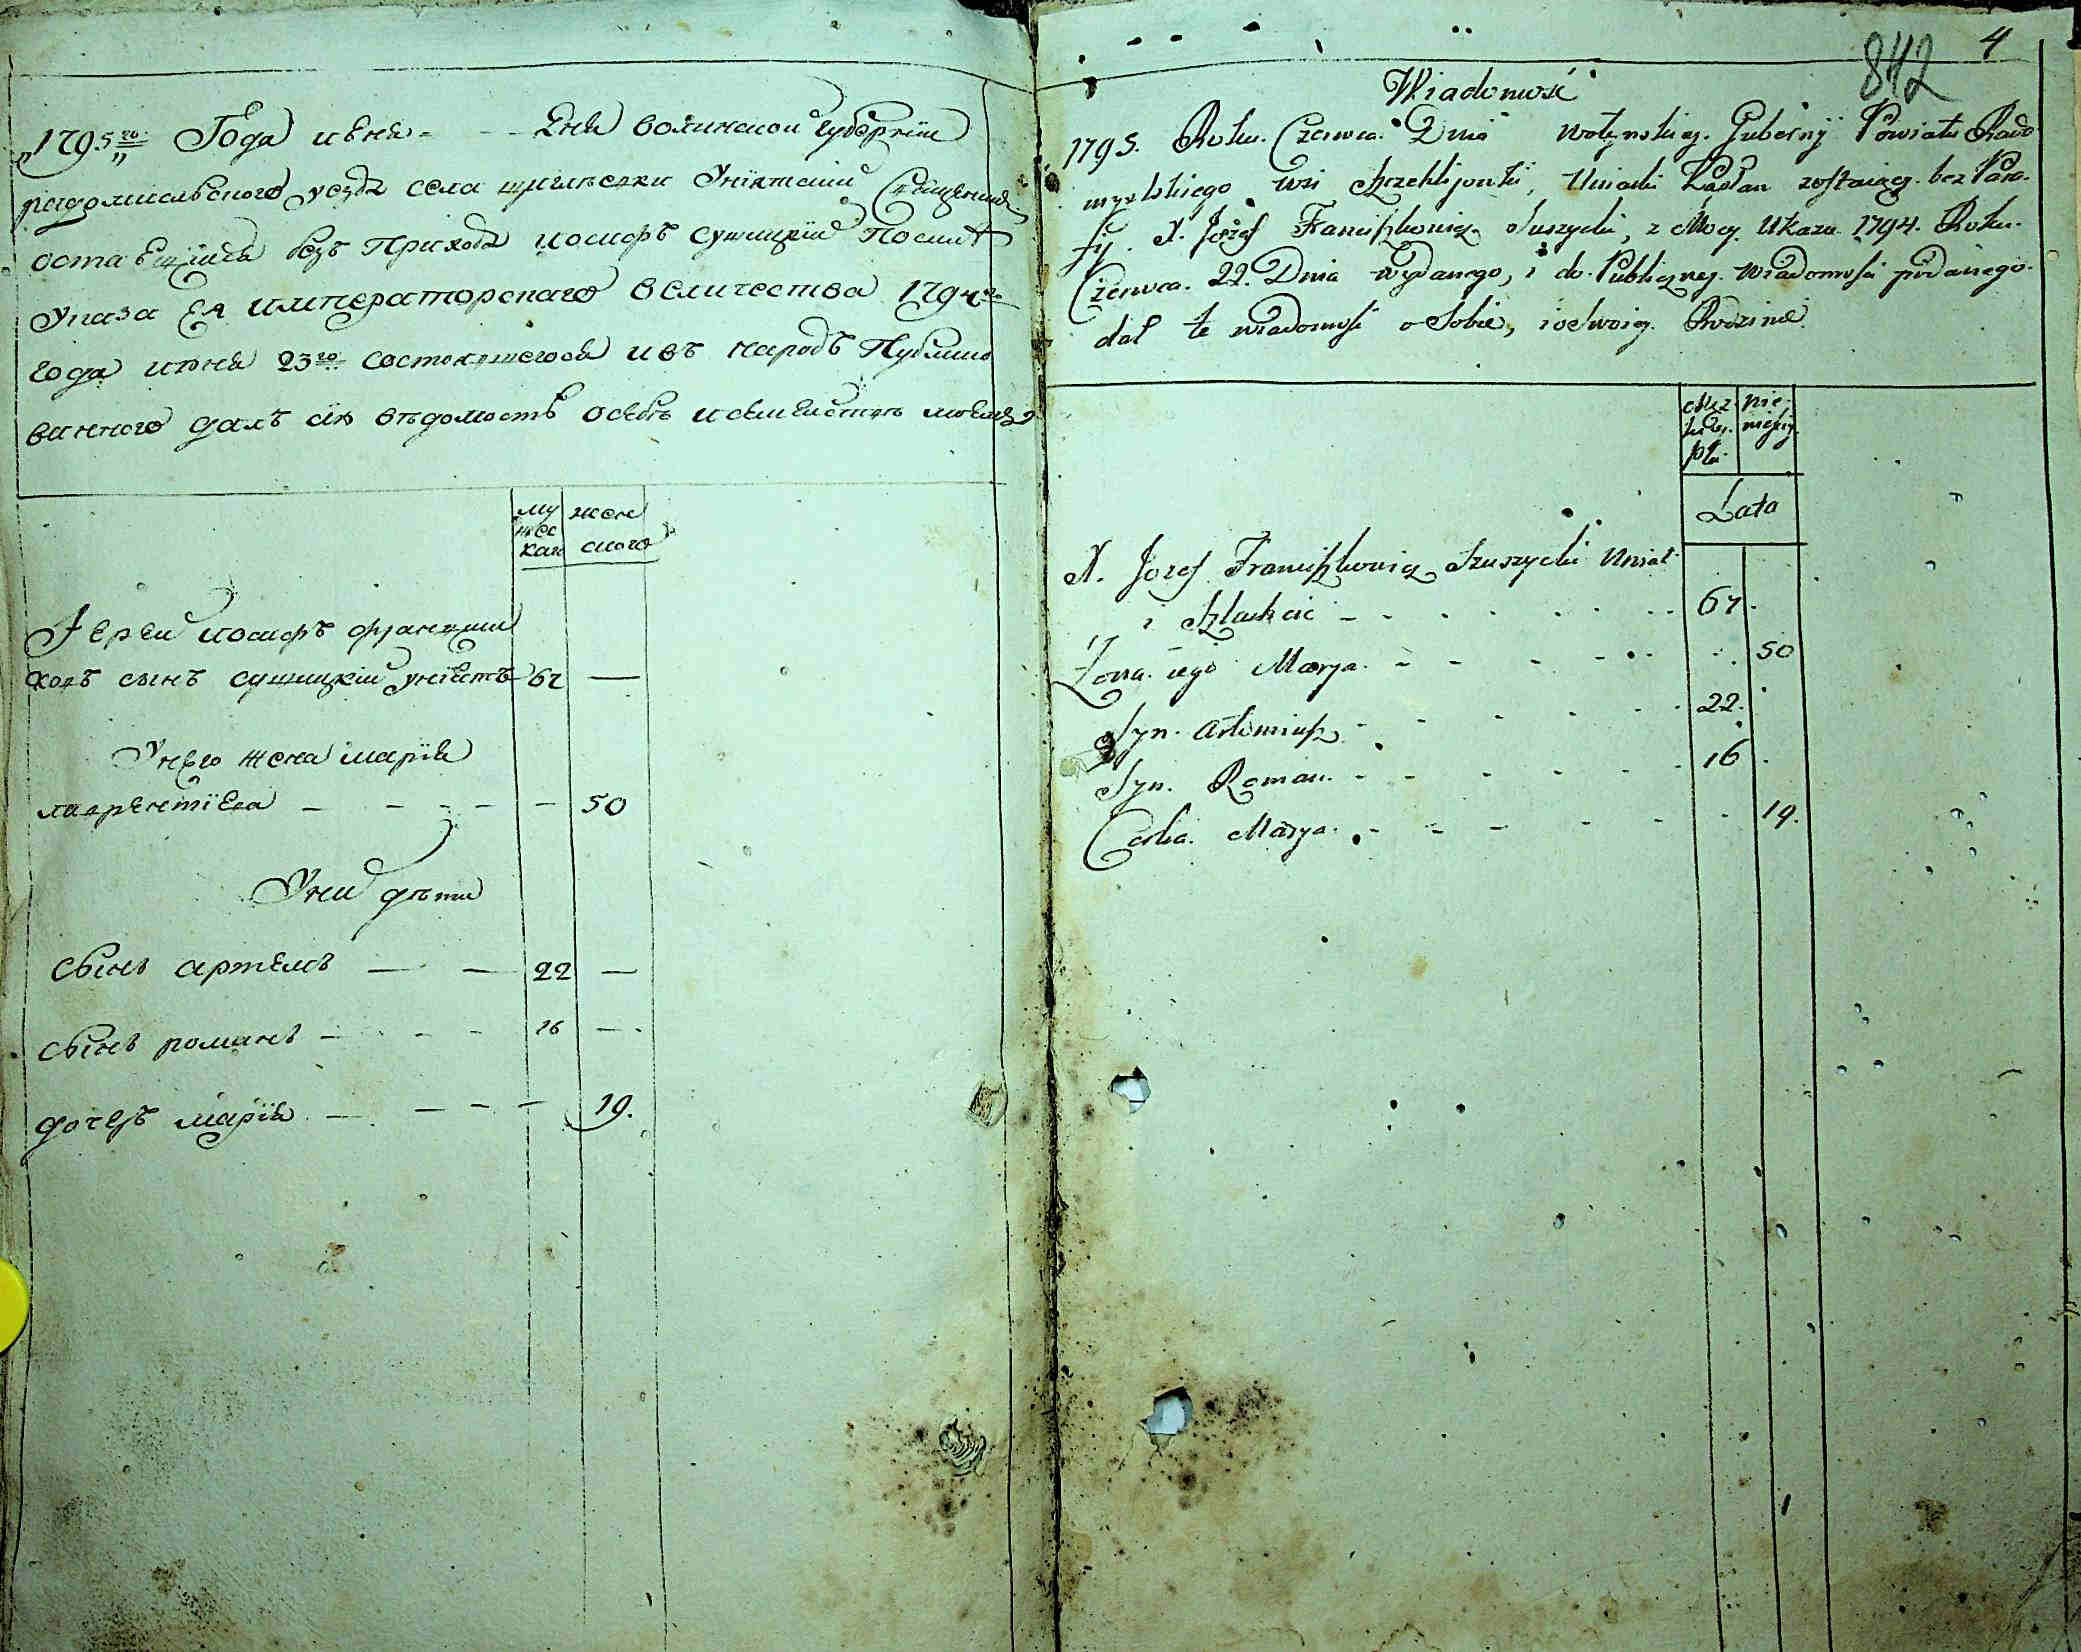 1795го Года июня - - дня волинской губернии
радомисльского уезда села Унѣятский Священник
оставшийся без Прихода иосифъ сушицкий По силе
Указа Ея императорского величества 1794го
года июня 23го состоявшегося и въ народъ Публико
ванного далъ сию вѣдомость о себѣ и семействѣ моем
му жес каго
жен ского
Иерей иосифъ францишковъ
сынъ сушицкий унѣятъ 67 —
У него жена мария
лаврентиева - - - - - 50
У них дѣти
сынъ артемъ — — 22 —
сынъ романъ - - - - 16 —
дочерь мария - - - - 19.
842 4
Wiadomość
1795. Roku. Czerwca. Dnia Wołynskiey. Gubernij Powiatu Rado
myslskiego wsi Uniacki Kapłan zostaiący. bez Para-
fij. X. Jozef Franciszkowicz Suszycki, z Mocy. Ukazu 1794. Roku.
Czerwca. 22. Dnia wydanego, i do Publiczney. wiadomości podanego.
dał te wiadomość o Sobie, i o Swoiey. Rodzinie.
Mez- kiey. płci.
nie- wieściey
Lata
X. Jozef Franciszkowicz Szuszycki Uniat
i Szlachcic - - - - - - 67.
Zona iego Marya. - - - - - - 50
Syn. Artemiusz - - - - - 22.
Syn. Roman. - - - - - 16
Corka. Marya. - - - - - - 19.